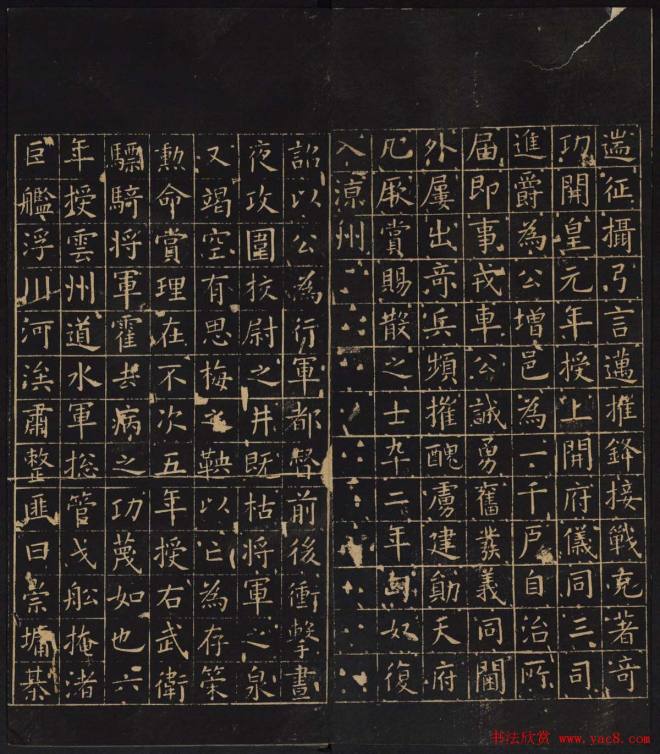 遄征攝弓言邁摧鋒接戰克著奇
功開皇元年授上開府儀同三司
進爵為公增邑為一千戶自治所
届即事戎車公誠勇奮發義同閫
外屢出奇兵頻摧醜虜建勛天府
凡厥賞賜散之士卆二年匈奴復
入涼州
詔以公為行軍都督前後衝擊晝
夜攻圍校尉之井既枯將軍之泉
又竭空有思梅之鞅以亡為存策
勲命賞理在不次五年授右武衛
驃騎將軍霍去病之功蔑如也六
年授雲州道水軍総管戈船掩渚
巨艦浮川河涘肅整匪曰崇墉綦
书法欣赏 www.yac8.com